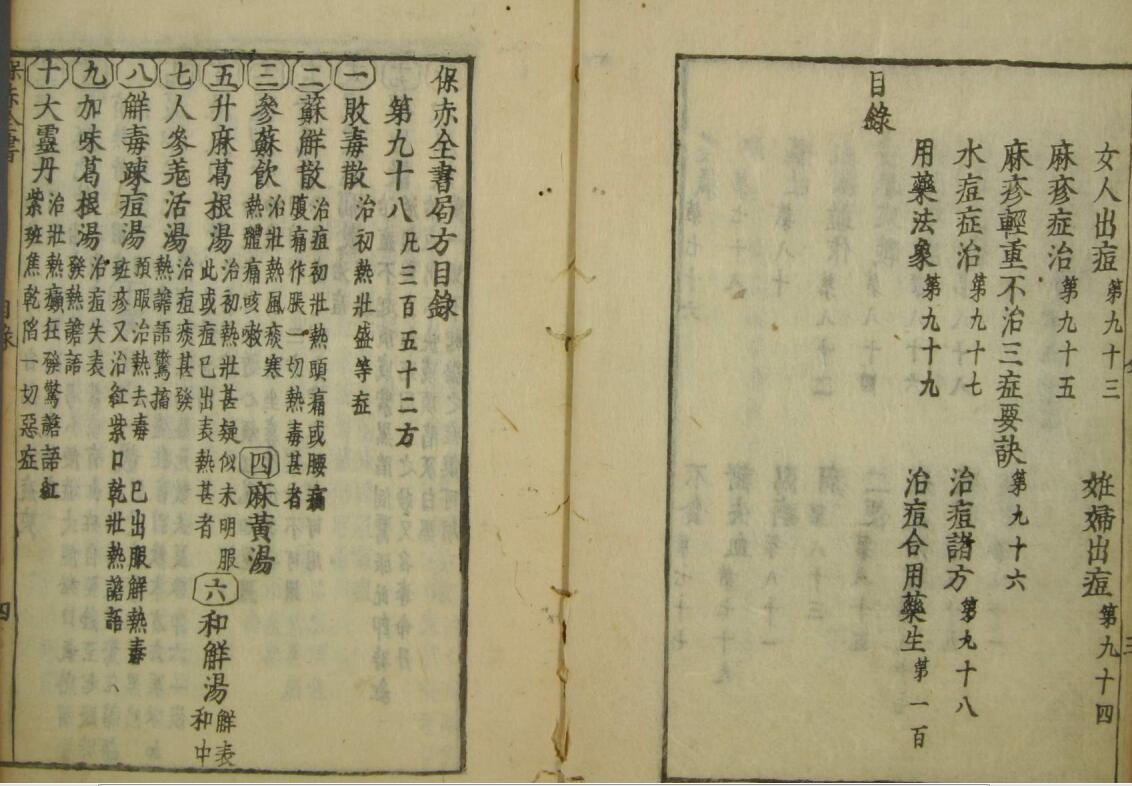 女人出痘 第九十三 妊婦出痘 第九十四
麻疹症治 第九十五
麻疹輕重不治三症要訣 第九十六
水痘症治 第九十七 治痘諸方 第九十八
用藥法象 第九十九 治痘合用藥生 第一百
目錄
保赤全書局方目錄
第九十八 凡三百五十二方
一 敗毒散 治初熱壯盛等症
二 蘇解散 治痘初壯熱頭痛或腰痛
腹痛作脹一切熱毒甚者
三 參蘇飲 治壯熱風痰寒
熱體痛咳嗽
四 麻黄湯
五 升麻葛根湯 治初熱壯甚疑似未明服
此或痘已出表熱甚者
六 和解湯 解表
和中
七 人參羗活湯 治痘痰甚發
熱譫語驚搐
八 解毒踈痘湯 預服治熱去毒 已出服解熱毒
班疹又治紅紫口乾壯熱譫語
九 加味葛根湯 治痘失表
發熱譫語
十 大靈丹 治壯熱癲狂發驚譫語紅
紫班焦乾陷一切惡症
保赤全書
目錄
四